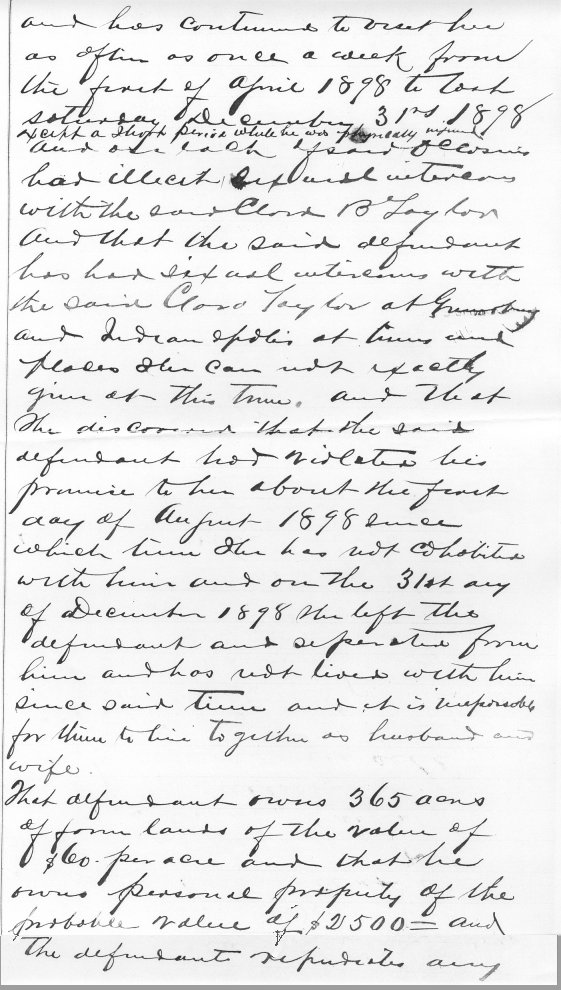 and has continued to visit her
as often as once a week from
the first of April 1898 to last
saturday December 31rs 1898
except a short period while he was physically injured
and on each of said occasions
had illicit sexual intercous
with the said Clora B Taylor
And that the said defendant
has had sexual intercours with
the said Clora Taylor at Greensburg
and Indianapolis at times and
places she can not exactly
give at this time. and that
she discovered that the said
defendant had violated his
promise to her about the first
day of August 1898 since
which time she has not cohabited
with him and on the 31st day
of December 1898 she left the
defendant and seperated from
him and has not lived with him
since said time and it is impossible
for them to live together as husband and
wife.
That defendant owns 365 acres
of farm lands of the value of
$60. per acre and that he
owns personal property of the
probable value of $2500= and
the defendants repudiates any